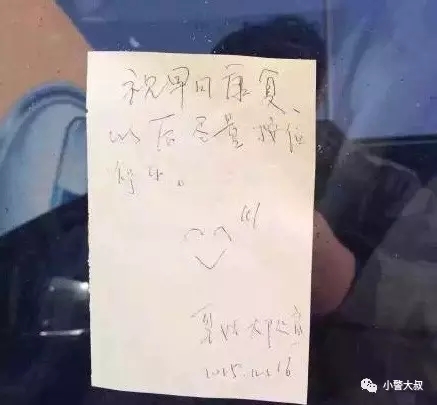 祝早日康复、
以后尽量按位
停车。
2015.12.16
小警大叔